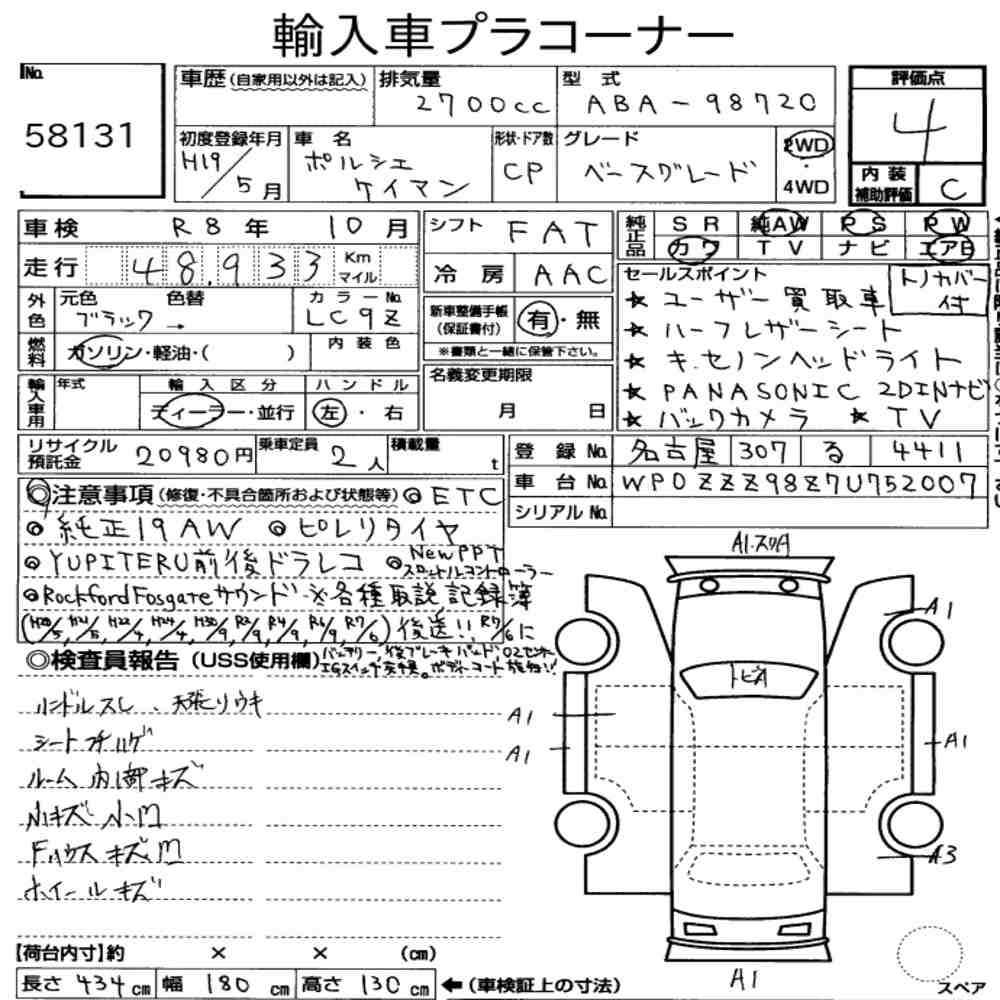 輸入車プラコーナー
No. 58131
車歴(自家用以外は記入) 排気量 2700cc 型式 ABA-98720
初度登録年月 H19/5月 車名 ポルシェ ケイマン 形状・ドア数 CP グレード ベースグレード 2WD・4WD
評価点 4
内装補助評価 C
車検 R8年 10月
走行 48,933 Km マイル
外色 元色 ブラック → 色替 カラーNo. LC9Z
燃料 ガソリン・軽油・( ) 内装色
輸入車用 年式 輸入区分 ディーラー・並行 ハンドル 左・右
シフト FAT
冷房 AAC
新車整備手帳(保証書付) 有・無
※書類と一緒に保管下さい。
名義変更期限 月 日
純正品 SR 純AW PS PW
カワ TV ナビ エアB
セールスポイント トノカバー付
★ユーザー買取車
★ハーフレザーシート
★キセノンヘッドライト
★PANASONIC 2DINナビ
★バックカメラ ★TV
リサイクル預託金 20980円 乗車定員 2人 積載量 t
登録No. 名古屋 307 る 4411
車台No. WP0ZZZ98Z7U752007
シリアルNo.
◎注意事項(修復・不具合箇所および状態等) ◎ETC
◎純正19AW ◎ピレリタイヤ
◎YUPITERU前後ドラレコ ◎New PPT スロットルコントローラー
◎Rockford Fosgateサウンド ※各種取説、記録簿
(H20/5, H21/5, H22/4, H24/4, H30/9, R2/9, R4/9, R6/9, R7/6)後送!!, R7/6に
バッテリー、後ブレーキパッド、O2センサー
IGスイッチ交換。ボディーコート施工!!
◎検査員報告(USS使用欄)
ハンドルスレ、天張りウキ
シートコゲ ハゲ
ルーム内部キズ
小キズ 小凹
Fハウス キズ凹
ホイールキズ
A1
A1
A1
A1
A3
トビA
A1
【荷台内寸】約 × × (cm)
長さ 434cm 幅 180cm 高さ 130cm ←(車検証上の寸法)
スペア